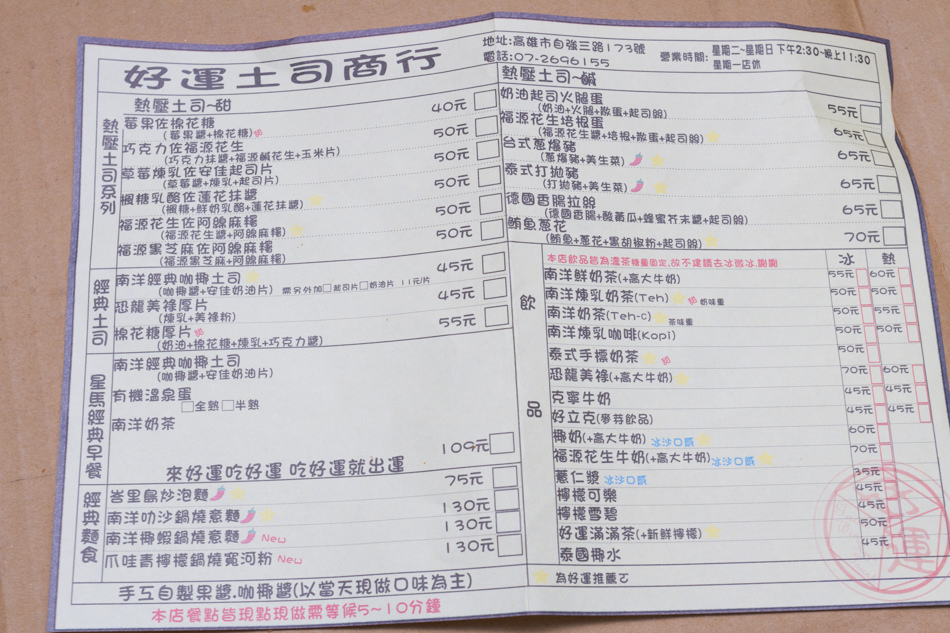 好運土司商行
地址:高雄市自強三路173號
電話:07-2696155
營業時間: 星期二~星期日 下午2:30~晚上11:30
星期一店休
熱壓土司系列
熱壓土司~甜
莓果佐棉花糖 40元
(莓果醬+棉花糖)
巧克力佐福源花生 50元
(巧克力抹醬+福源鹹花生+玉米片)
草莓煉乳佐安佳起司片 50元
(草莓醬+煉乳+起司片)
楓糖乳酪佐蓮花抹醬 50元
(楓糖+鮮奶乳酪+蓮花抹醬)
福源花生佐阿嬤麻糬 50元
(福源花生醬+阿嬤麻糬)
福源黑芝麻佐阿嬤麻糬 50元
(福源黑芝麻+阿嬤麻糬)
經典土司
南洋經典咖椰土司 45元
(咖椰醬+安佳奶油片) 需另外加□起司片□奶油片 11元/片
恐龍美祿厚片 45元
(煉乳+美祿粉)
棉花糖厚片 55元
(奶油+棉花糖+煉乳+巧克力醬)
星馬經典早餐
南洋經典咖椰土司
(咖椰醬+安佳奶油片)
有機溫泉蛋
□全熟□半熟
南洋奶茶
109元
來好運吃好運 吃好運就出運
經典麵食
峇里島炒泡麵 75元
南洋叻沙鍋燒意麵 130元
南洋椰蝦鍋燒意麵 New 130元
爪哇青檸檬鍋燒寬河粉 New 130元
手工自製果醬.咖椰醬(以當天現做口味為主)
本店餐點皆現點現做需等候5~10分鐘
熱壓土司~鹹
奶油起司火腿蛋 55元
(奶油+火腿+散蛋+起司絲)
福源花生培根蛋 65元
(福源花生醬+培根+散蛋+起司絲)
台式蔥爆豬 65元
(蔥爆豬+美生菜)
泰式打拋豬 65元
(打拋豬+美生菜)
德國香腸拉絲 65元
(德國香腸+酸黃瓜+蜂蜜芥末醬+起司絲)
鮪魚蔥花 70元
(鮪魚+蔥花+黑胡椒粉+起司絲)
飲品
本店飲品皆為濃茶糖量固定,故不建議去冰微冰,謝謝
冰 熱
南洋鮮奶茶(+高大牛奶) 55元 60元
南洋煉乳奶茶(Teh) 奶味重 50元 50元
南洋奶茶(Teh-c) 茶味重 50元 55元
南洋煉乳咖啡(Kopi) 50元 50元
泰式手標奶茶 50元
恐龍美祿(+高大牛奶) 70元 60元
克寧牛奶 45元 45元
好立克(麥芽飲品) 45元 45元
椰奶(+高大牛奶) 冰沙口感 60元
福源花生牛奶(+高大牛奶) 冰沙口感 70元
薏仁漿 冰沙口感 35元
檸檬可樂 45元
檸檬雪碧 45元
好運滿滿茶(+新鮮檸檬) 50元
泰國椰水 45元
為好運推薦ㄛ